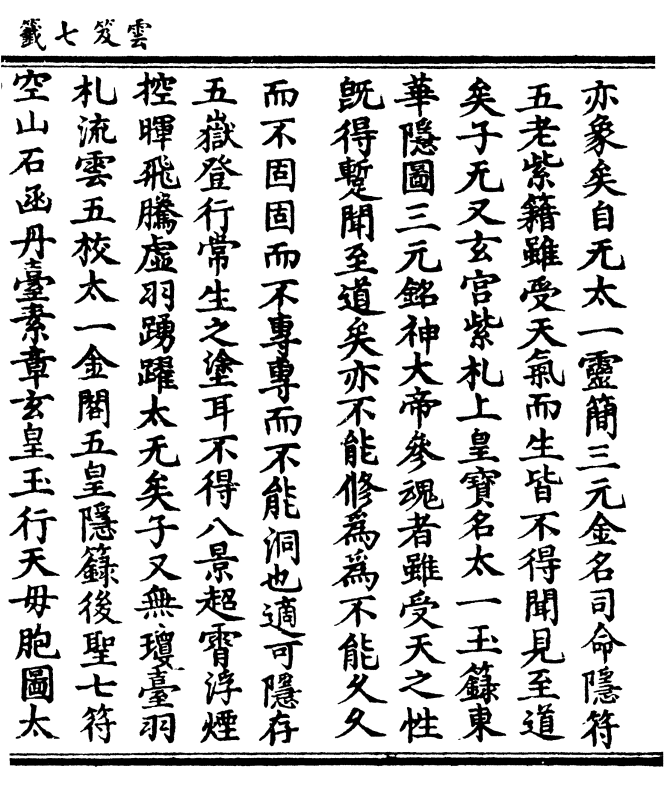 雲笈七籤
亦象矣自无太一靈簡三元金名司命隱符
五老紫籍雖受天氣而生皆不得聞見至道
矣子无又玄宮紫札上皇寶名太一玉籙東
華隱圖三元銘神大帝參魂者雖受天之性
旣得蹔聞至道矣亦不能修爲爲不能久久
而不固固而不專專而不能洞也適可隱存
五嶽登行常生之塗耳不得八景超霄浮煙
控暉飛騰虛羽踴躍太无矣子又無瓊臺羽
札流雲五校太一金閣五皇隱籙後聖七符
空山石函丹臺素章玄皇玉行天毋胞圖太